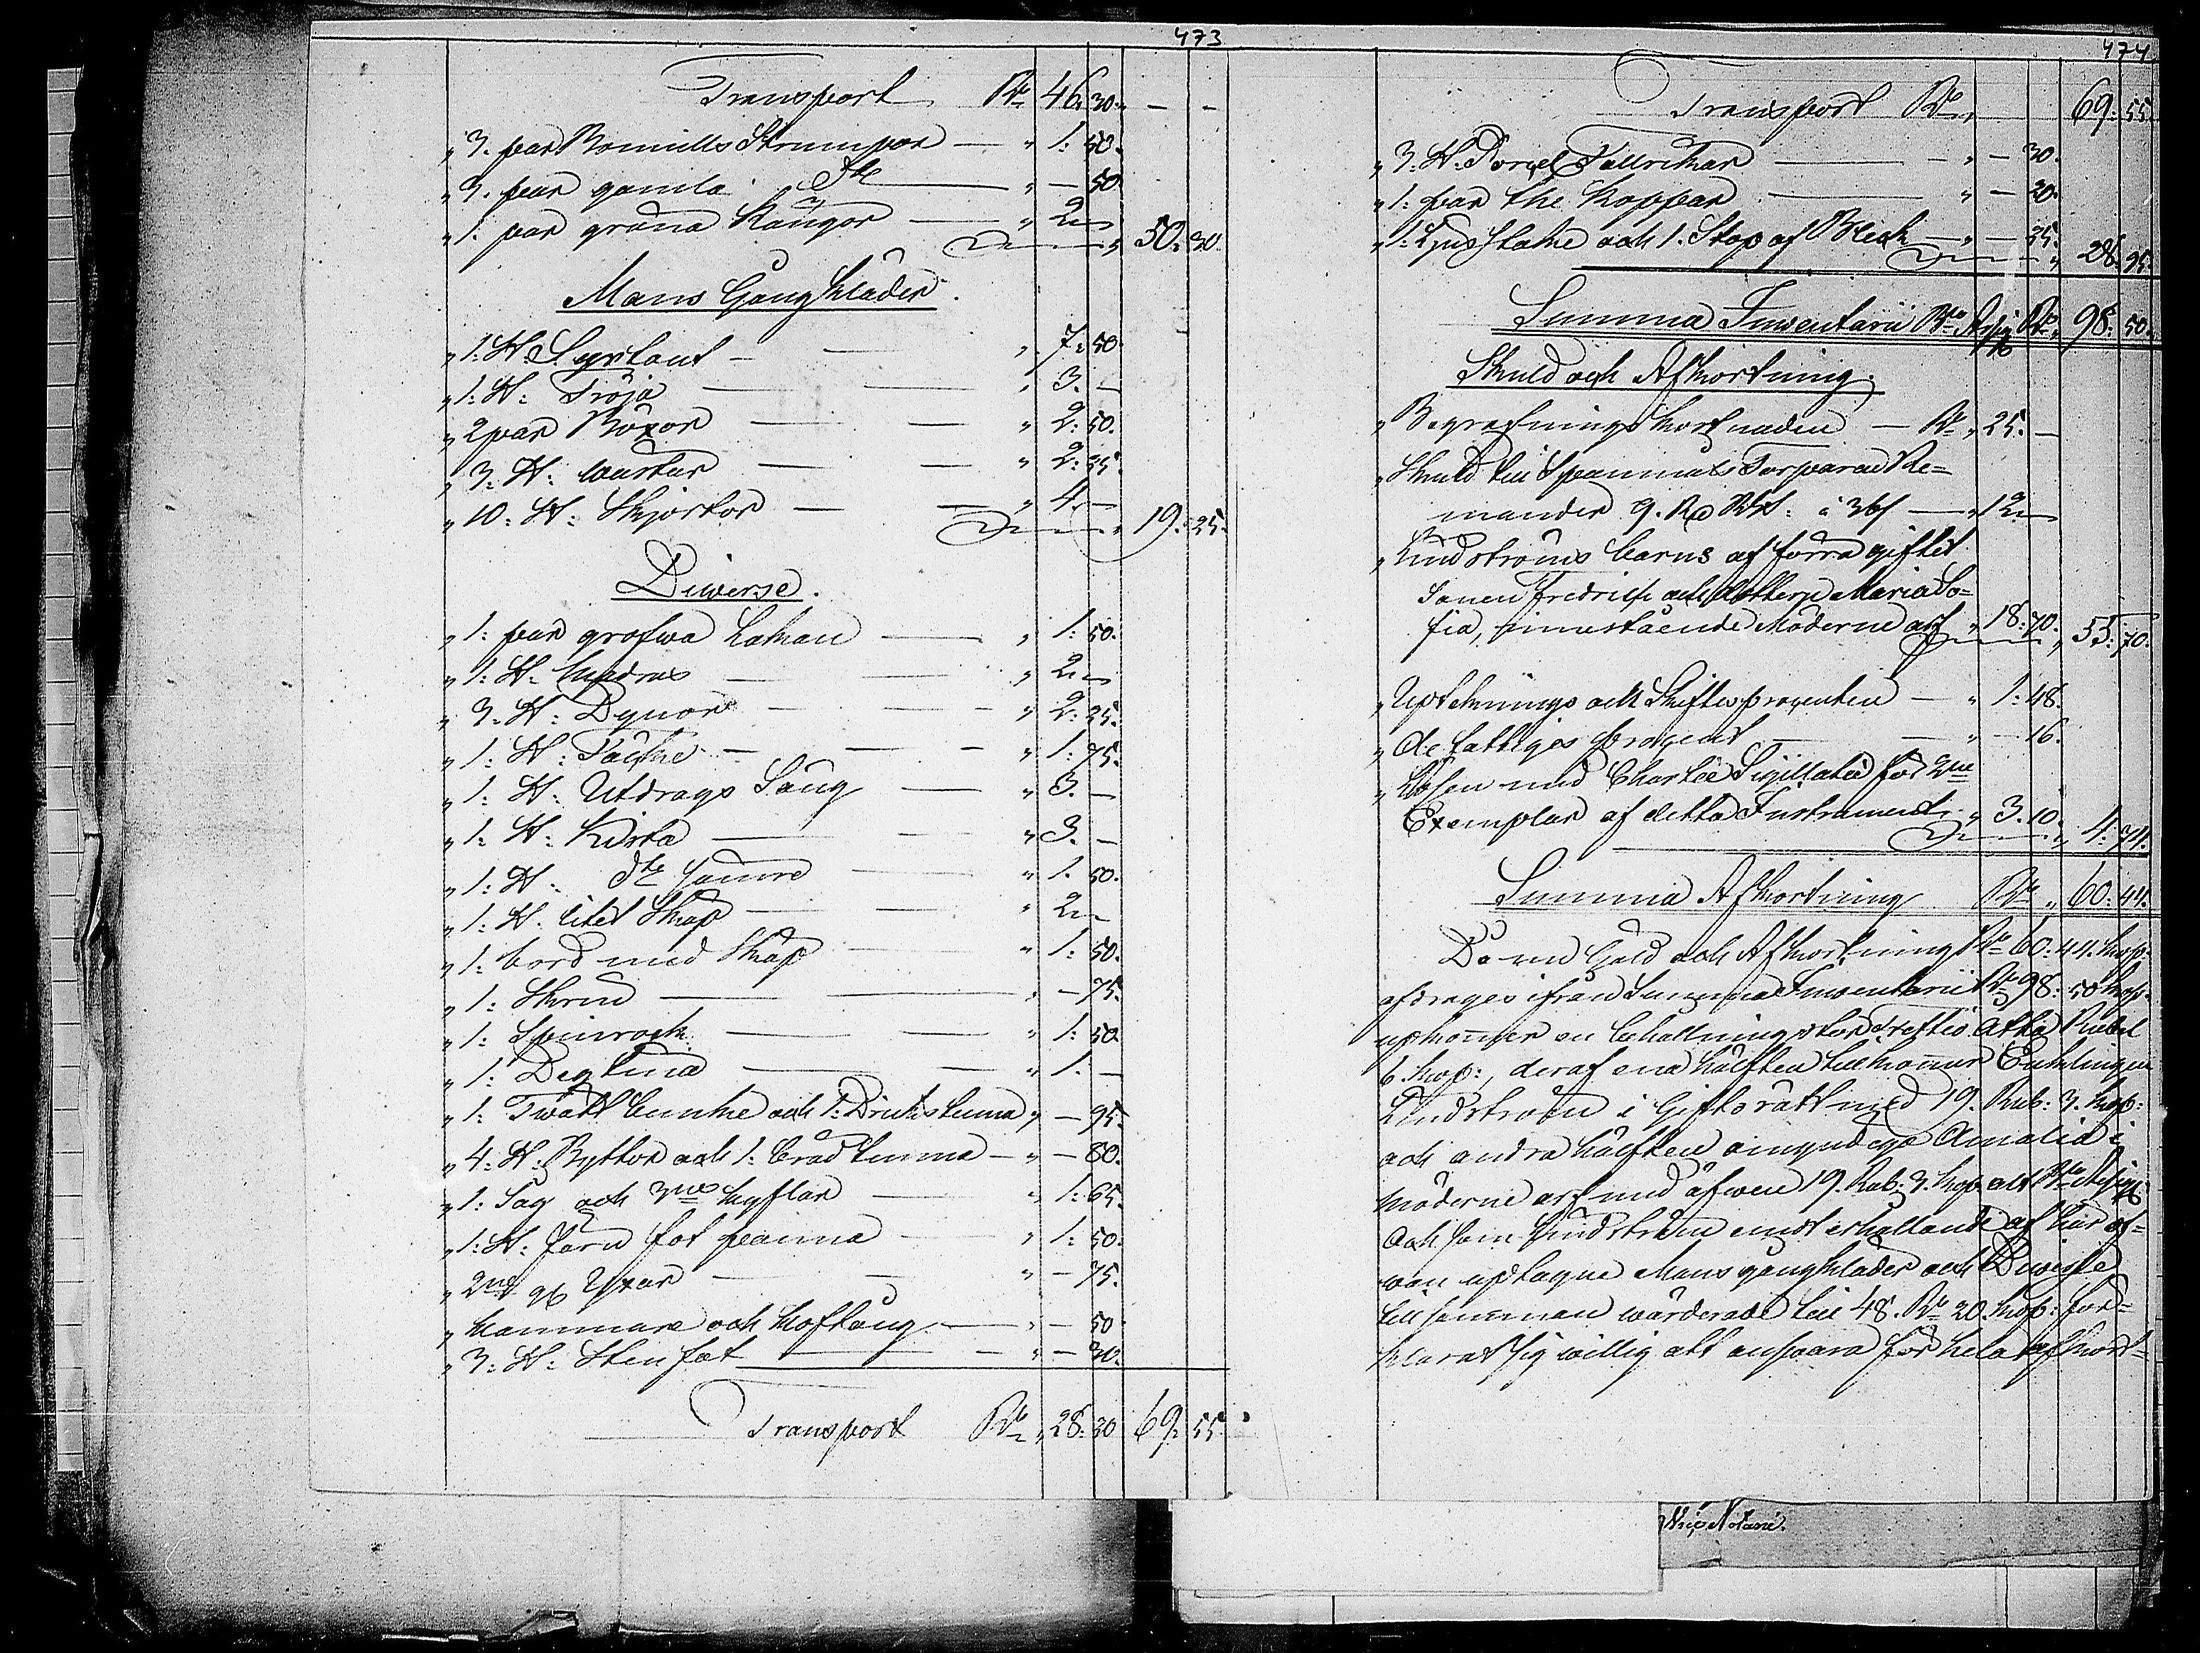 473
Transport Rb 46. 30. - -
" 3. par Bomulls Strumpor — " 1: 50.
" 3. par gamla Dto — " — 50.
" 1. par gröna Rängor — " 2. — 50. 30.
Mans Gångkläder.
" 1: St: Syrtout — " 7: 50.
" 1: St: Tröja — " 3. —
" 2 par Böxor — " 2: 50.
" 3: St: westar — " 2: 25.
" 10: St: Skjortor — " 4. — 19. 25.
Diverse.
" 1: par grofwa Lakan — " 1: 50.
" 1: St: — " 2. —
" 3: St: Dynor — " 2: 25.
" 1: St: Täcke — " 1: 75.
" 1: St: Utdrags Säng — " 3. —
" 1: St: Kista — " 3. —
" 1: St: dto sämre — " 1. 50.
" 1: St: litet Skåp — " 2. —
" 1: bord med Skåp — " 1: 50.
" 1: Skrin — " — 75.
" 1: Spinrock — " 1: 50.
" 1: Degtina — " 1. —
" 1: Twätt bunke och 1: Drickstunna " — 95.
" 4: St: Byttor och 1: bråd tunna — " — 80.
" 1: Såg och 3ne hyflar — " 1: 65.
" 1: St: Järn fot panna — " 1: 50.
" 2ne Yxor — " — 75.
" hammare och hoftång — " — 50.
" 3: St: Stenfat — " — 30.
Transport Rb " 28: 30 69. 55.
474
Transport Rb " 69: 55.
" 3: St: Porcel. Tallrikar — " — 30.
" 1: par the koppar — " — 20.
" 1: Ljusstake och 1. Stop af Bleck — " — 35. 28. 95.
Summa Inventarii Rb Assig Rb " 98: 50.
Skuld och Afkortning.
" Begrafnings kostnaden — Rb " 25. —
" Skuld till Spannmåls Torparne Re=
mander 9. à — " 12. —
" Lindströms barns af förra giftet
Sonen Fredrik och dottern Maria So=
fia, innestående Möderne arf " 18: 70. " 55: 70.
" Uptecknings och Skiftesprocenten — " 1: 48.
" De fattiges procent — " — 16.
" Lösen med Chartæ Sigillatæ för 2ne
Exemplar af detta Instrument " 3. 10. " 4: 74.
Summa Afkortning Rb " 60: 44.
Då nu Gäld och Afkortning Rb 60: 44. kop:
afdrages ifrån Summa Inventarii Rb 98: 50 kop:
upkommer en behållning stor Trettio åtta Rubel
6. kop:, deraf ena hälften tillkommer Enklingen
Lindström i Giftorätt med 19. Rub: 3. kop:
och andra hälften omyndiga Amalia i
möderne arf med äfwen 19. Rub: 3. kop: alt Rb Assig
och som Lindström emot erhållande af här of=
wan uptagne Mans gångkläder och Diverse
till samman wärderade till 48. Rb 20. kop: för=
klarat sig willig att answara för hela afkort=
Notarie.